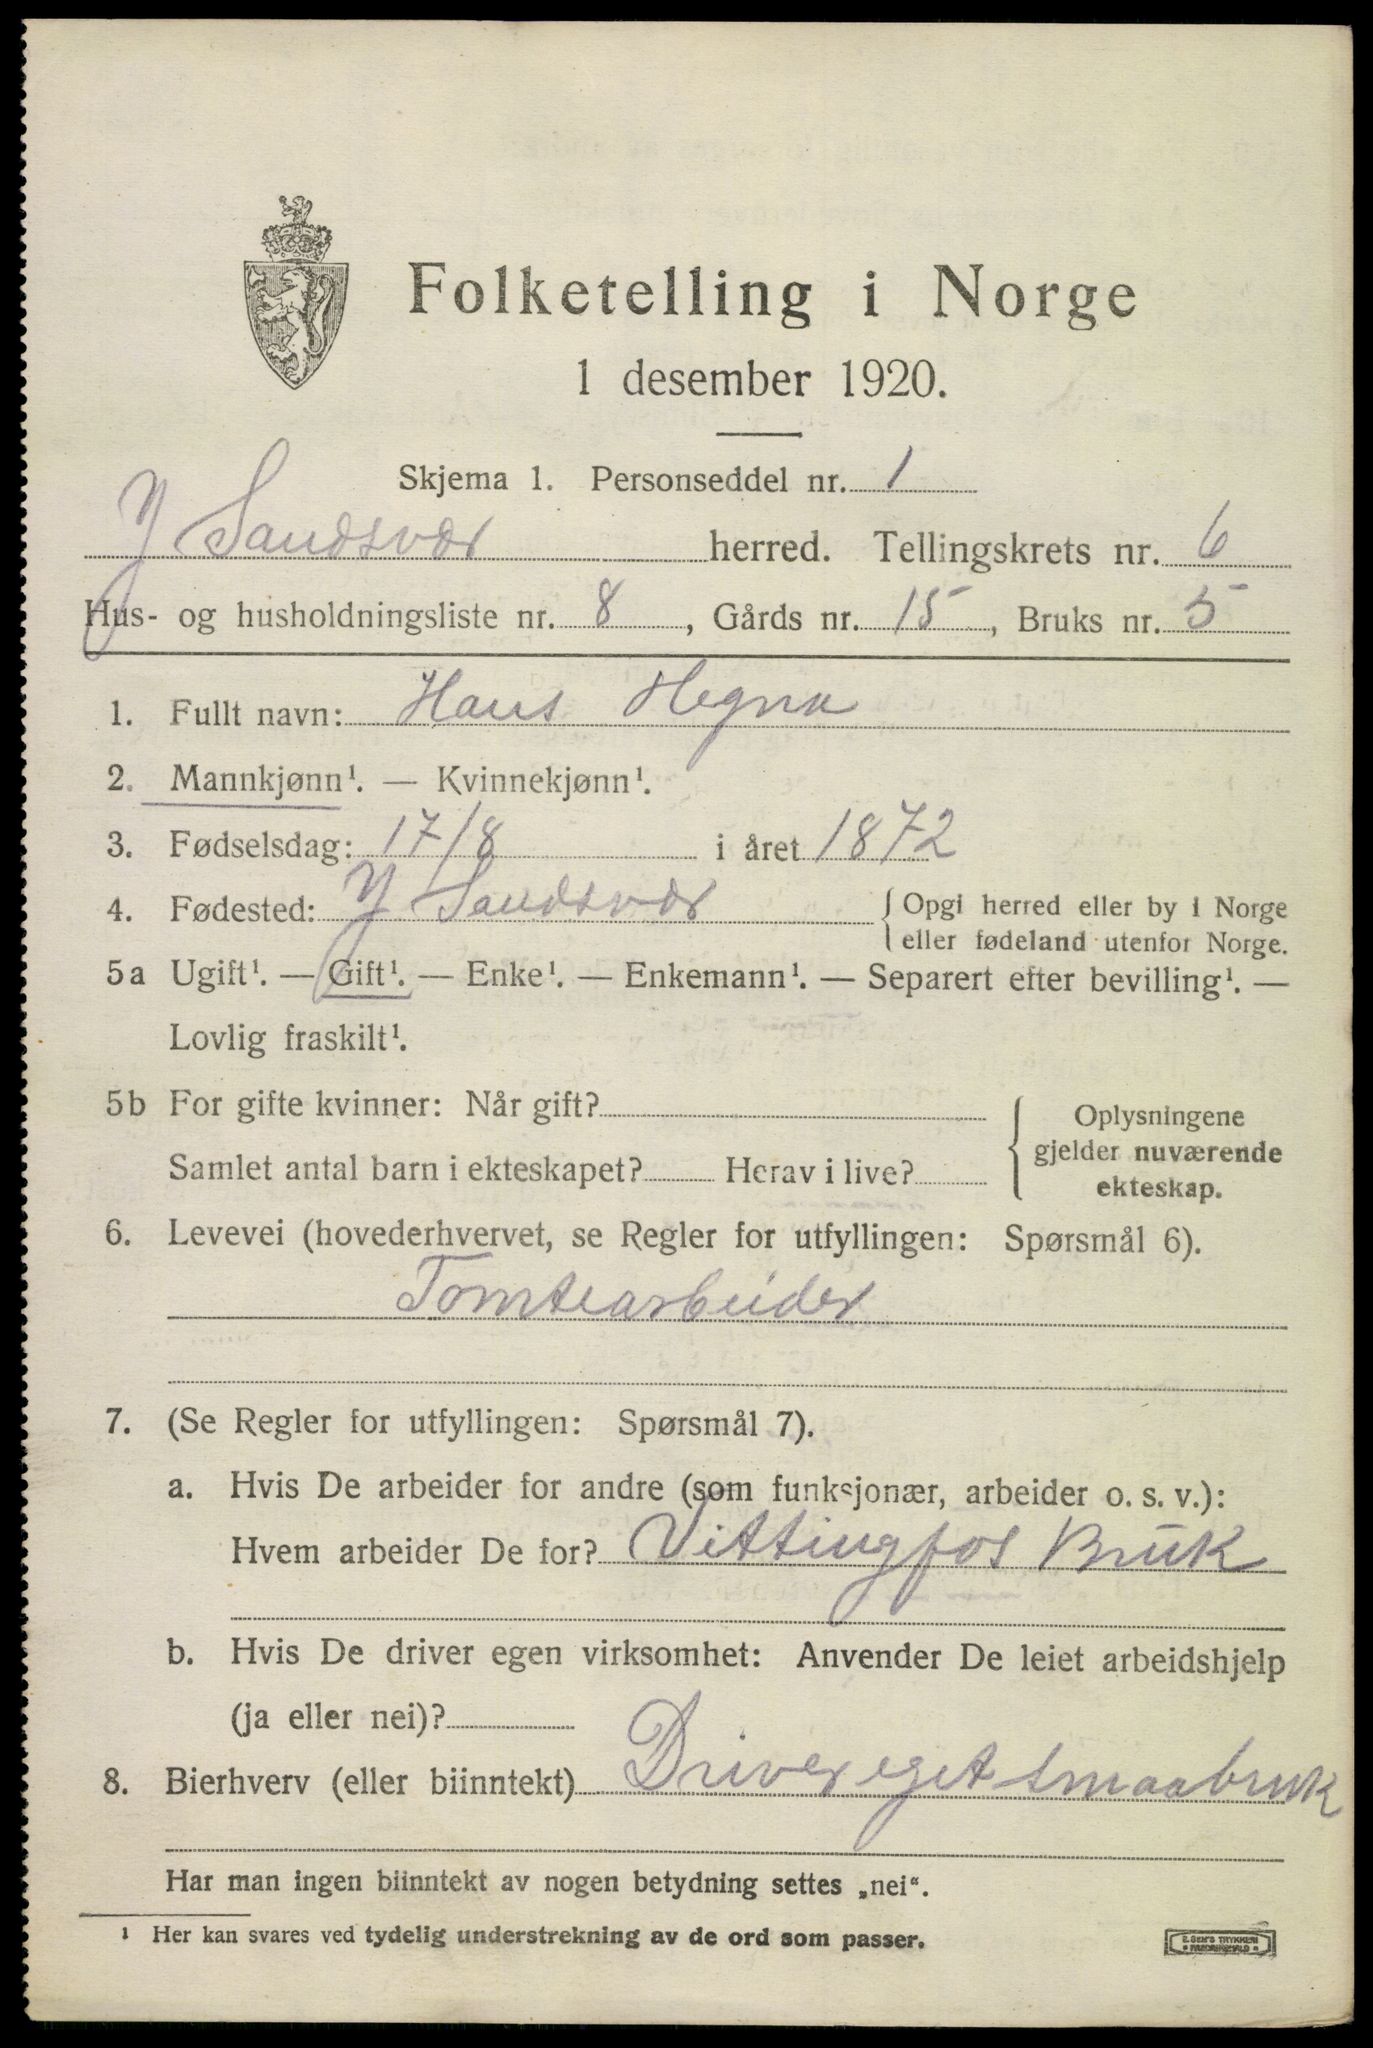 Folketelling i Norge
1 desember 1920.
Skjema 1. Personseddel nr. 1
Y Sandsvær herred. Tellingskrets nr. 6
Hus- og husholdningsliste nr. 8, Gårds nr. 15, Bruks nr. 5
1. Fullt navn: Hans Hegna
2. Mannkjønn¹. — Kvinnekjønn¹.
3. Fødselsdag: 17/8 i året 1872
4. Fødested: Y Sandsvær { Opgi herred eller by i Norge
eller fødeland utenfor Norge.
5a Ugift¹. — Gift¹. — Enke¹. — Enkemann¹. — Separert efter bevilling¹. —
Lovlig fraskilt¹.
5b For gifte kvinner: Når gift?
Samlet antal barn i ekteskapet? Herav i live?
{ Oplysningene
gjelder nuværende
ekteskap.
6. Levevei (hovederhvervet, se Regler for utfyllingen: Spørsmål 6).
Tomtearbeider
7. (Se Regler for utfyllingen: Spørsmål 7).
a. Hvis De arbeider for andre (som funksjonær, arbeider o. s. v.):
Hvem arbeider De for? Vittingfos Bruk
b. Hvis De driver egen virksomhet: Anvender De leiet arbeidshjelp
(ja eller nei)?
8. Bierhverv (eller biinntekt) Driver eget smaabruk
Har man ingen biinntekt av nogen betydning settes „nei“.
¹ Her kan svares ved tydelig understrekning av de ord som passer.